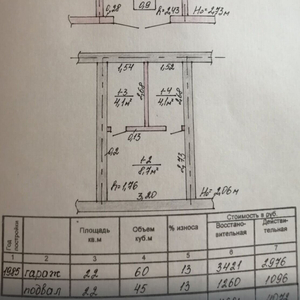 0,28
0,9
h=2,43
Но=2,73м
1,54
1,52
1-3
4,1м²
2,68
1-4
4,1м²
2,68
0,13
0,2
1-2
8,7м²
2,73
h=1,76
3,20
Но=2,06м
Год постройки
Площадь кв.м
Объем куб.м
% износа
Стоимость в руб.
Восстано-вительная
Действи-тельная
1 2 3 4 5 6 7
1985 гараж 22 60 13 3421 2976
подвал 22 45 13 1260 1096